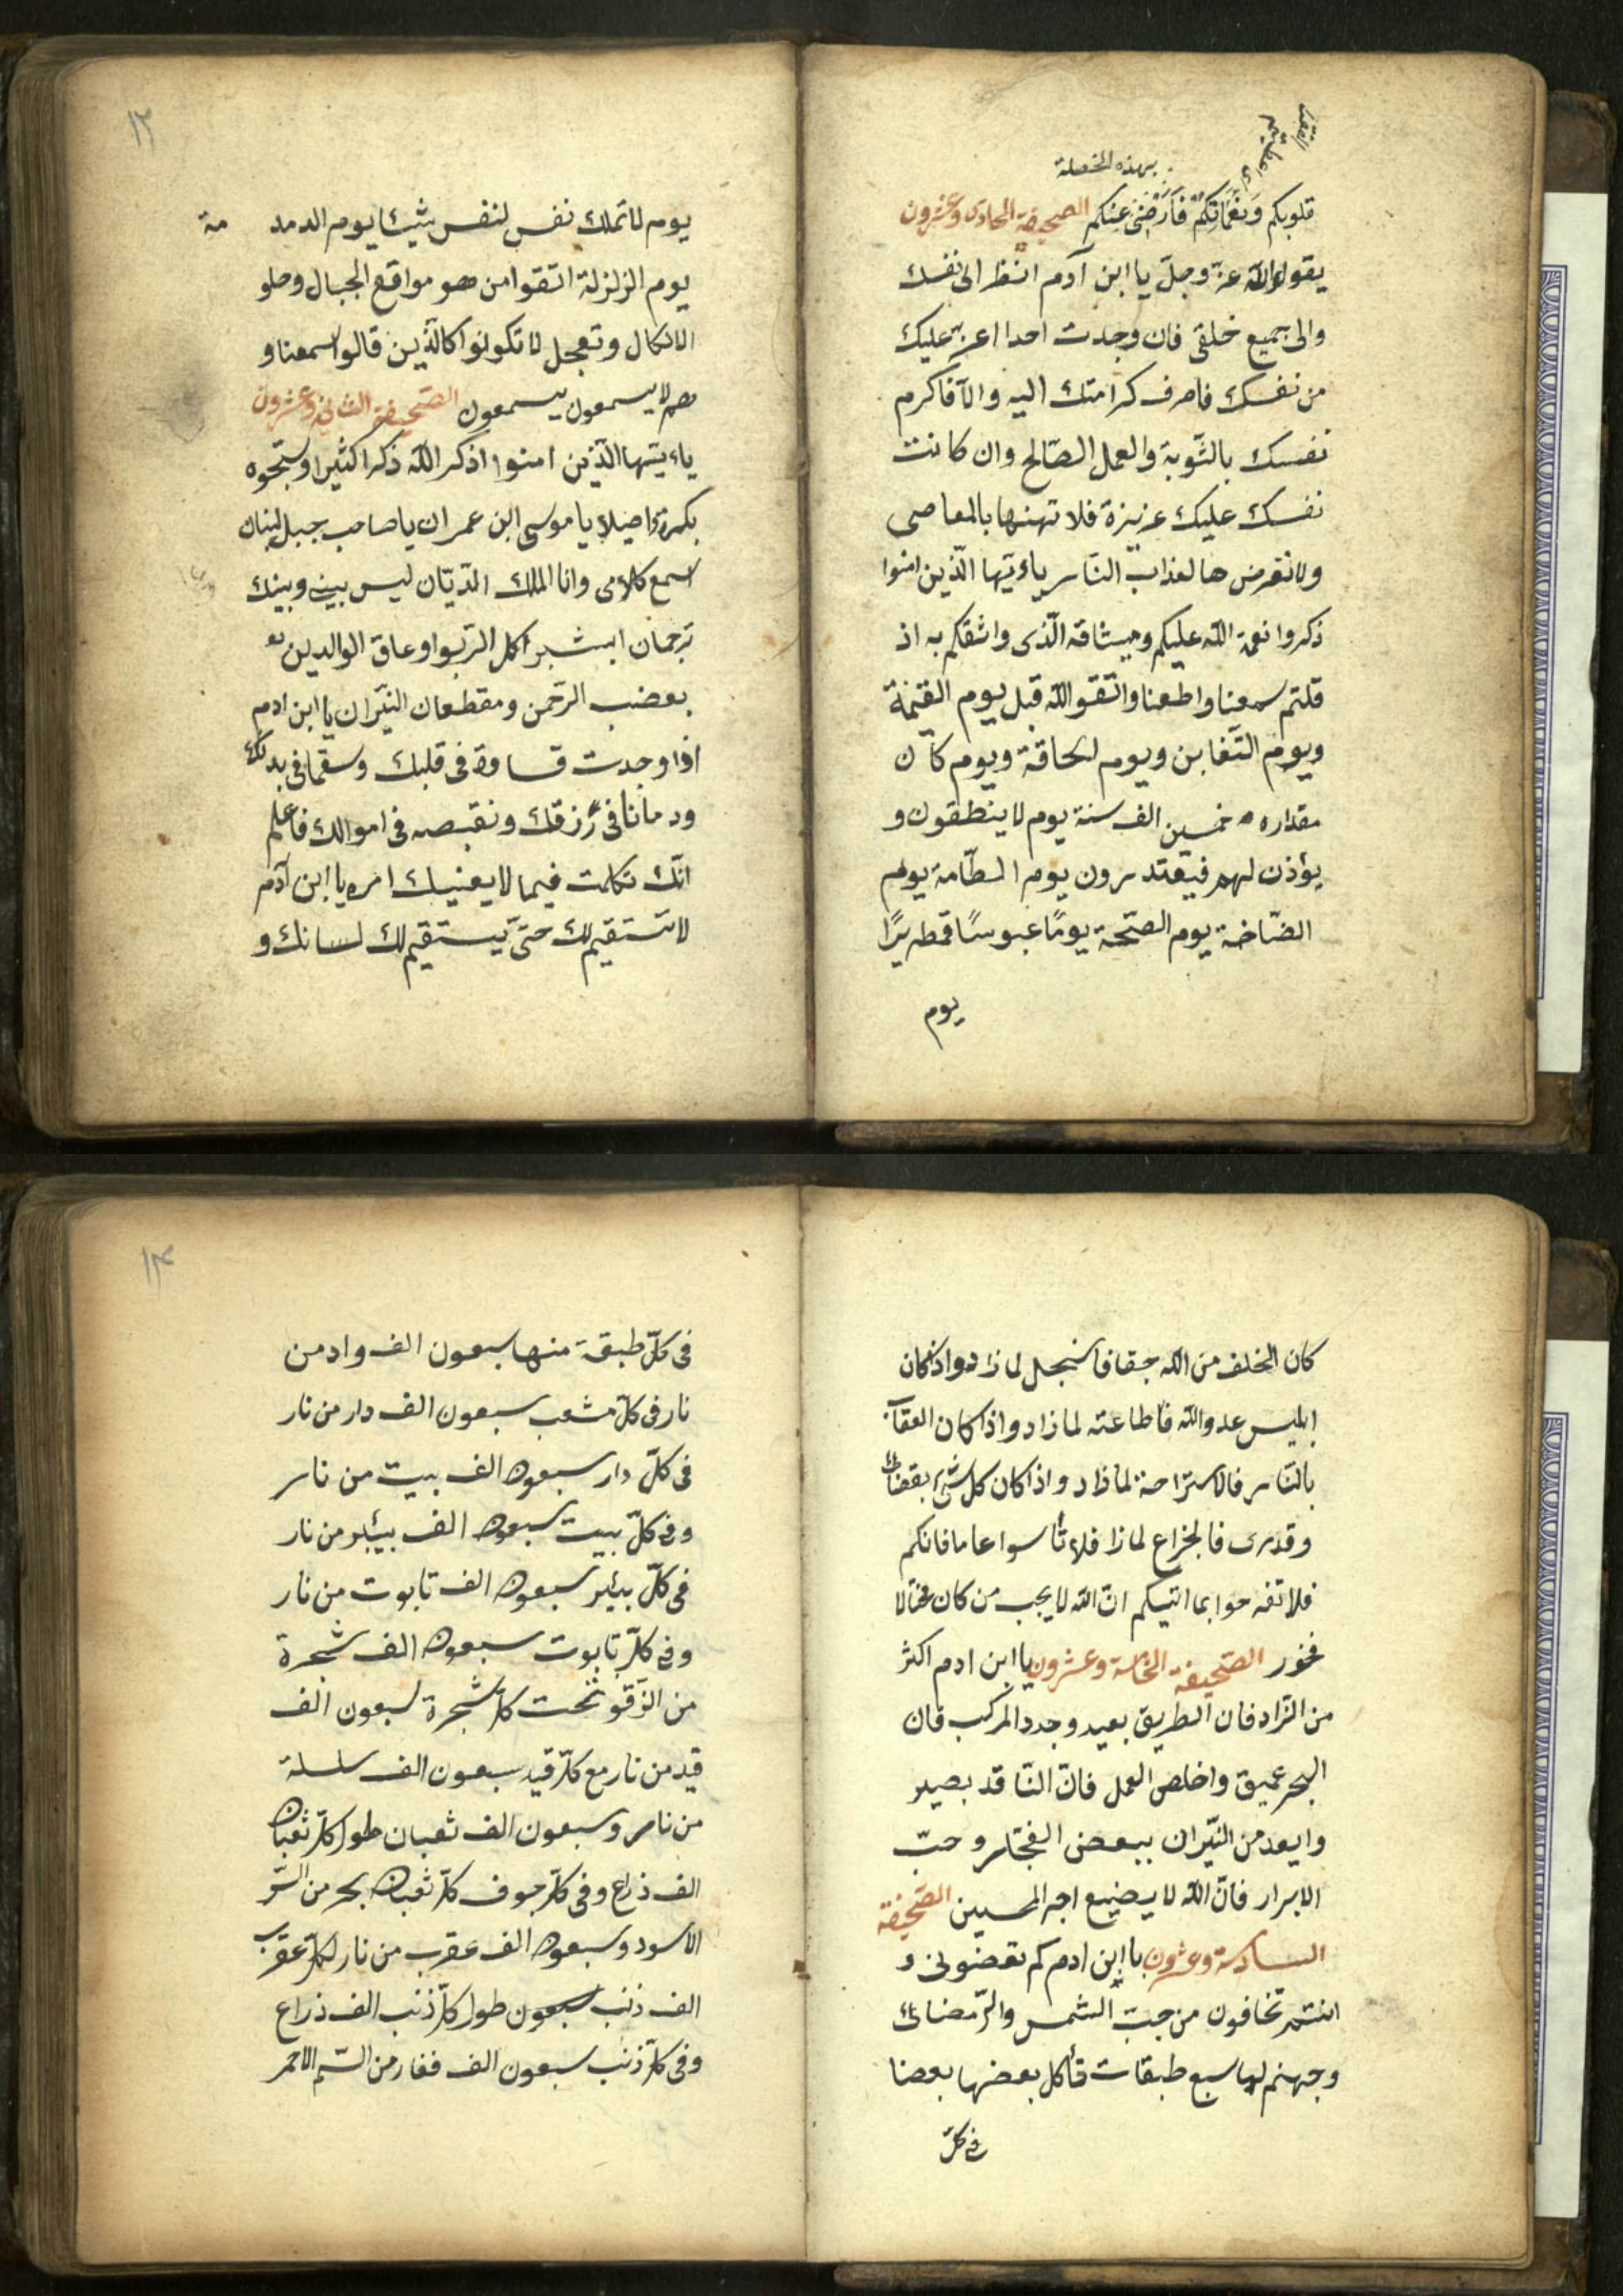 بهذه الخصلة
قلوبكم ونغماتكم فارضى عنكم الصحيفة الحادى وعشرون
يقول الله عز وجلّ يا ابن آدم انظر الى نفسك
والى جميع خلقى فان وجدت احدا اعزّ عليك
من نفسك فاصرف كرامتك اليه والّا فاكرم
نفسك بالتّوبة والعمل الصّالح وان كانت
نفسك عليك عزيزة فلا تهنها بالمعاصى
ولا تعرض ها لعذاب النّار ياءيّها الّذين امنوا
ذكروا نعمة اللّه عليكم وميثاقه الّذى واثقكم به اذ
قلتم سمعنا واطعنا واتّقو اللّه قبل يوم القيٰمة
ويوم التّغابن ويوم لحاقة ويوم كان
مقداره خمسين الف سنة يوم لا ينطقون و
يؤذن لهم فيعتدرون يوم الطّامة يوم
الصّاخة يوم الصّحة يومًا عبوسًا قمطريرًا
يوم
١٣
يوم لا تملك نفس لنفس شيئا يوم الدمد مة
يوم الزلزلة اتقوا من هو مواقع الجبال وحلو
الانكال وتعجل لا تكونوا كالّذين قالوا سمعنا و
هم لا يسمعون يسمعون الصّحيفة الثانى وعشرون
ياءيّتها الّذين امنوا اذكر اللّه ذكرا كثيرا وسبّحوه
بكرة واصيلا يا موسى ابن عمران يا صاحب جبل لبنان
اسمع كلامى وانا الملك الدّيّان ليس بينى وبينك
ترجمان ابشر اكل الرّبوا وعاق الوالدين
بعضب الرّحمن ومقطعان النّيران يا ابن ادم
اذا وجدت قساوة فى قلبك وسقما فى بدنك
ودمانا فى رزقك ونقيصه فى اموالك فاعلم
انّك تكلمت فيما لا يعنيك امره يا ابن آدم
لا تستقيم لك حتّى يستقيم لك لسانك و
كان الخلف من اللّه حقا فا لنجل لماذا دواذا كان
ابليس عدو اللّه فاطاعته لماذا دواذا كان العقاب
بالنّار فالاستراحة لماذا د واذا كان كل شئ بقضائى
وقدرى فالجزاع لماذا فلا تأسوا عاما فاتكم
فلا تفرحوا بما اتيكم انّ اللّه لا يحب من كان مختالا
فخور الصّحيفة الخامسة وعشرون يا ابن ادم اكثر
من الزّاد فان الطريق بعيد وجدد المركب فان
البحر عميق واخلص العمل فانّ النّاقد بصير
وابعد من النّيران ببعض الفجّار وحبّ
الابرار فانّ اللّه لا يضيع اجر المحسين الصّحيفة
السادسة وعشرون يا ابن ادم كم تعصونى و
انتم تخافون من حبّ الشمس والرّمضائ
وجهنم لها سبع طبقات تأكل بعضها بعضا
فى كلّ
١٤
فى كلّ طبقة منها سبعون الف واد من
نار فى كلّ شعب سبعون الف دار من نار
فى كلّ دار سبعون الف بيت من نار
وفى كلّ بيت سبعون الف بيئر من نار
فى كلّ بيئر سبعون الف تابوت من نار
وفى كلّ تابوت سبعون الف شجرة
من الزّقو تحت كلّ شجرة سبعون الف
قيد من نار مع كلّ قيد سبعون الف سلسلة
من نار وسبعون الف ثعبان طول كلّ ثعبان
الف ذراع وفى كلّ جوف كلّ ثعبان بحر من السّم
الاسود وسبعون الف عقرب من نار لكلّ عقرب
الف ذنب سبعون طول كلّ ذنب الف ذراع
وفى كلّ ذنب سبعون الف فغار من السّم الاحمر